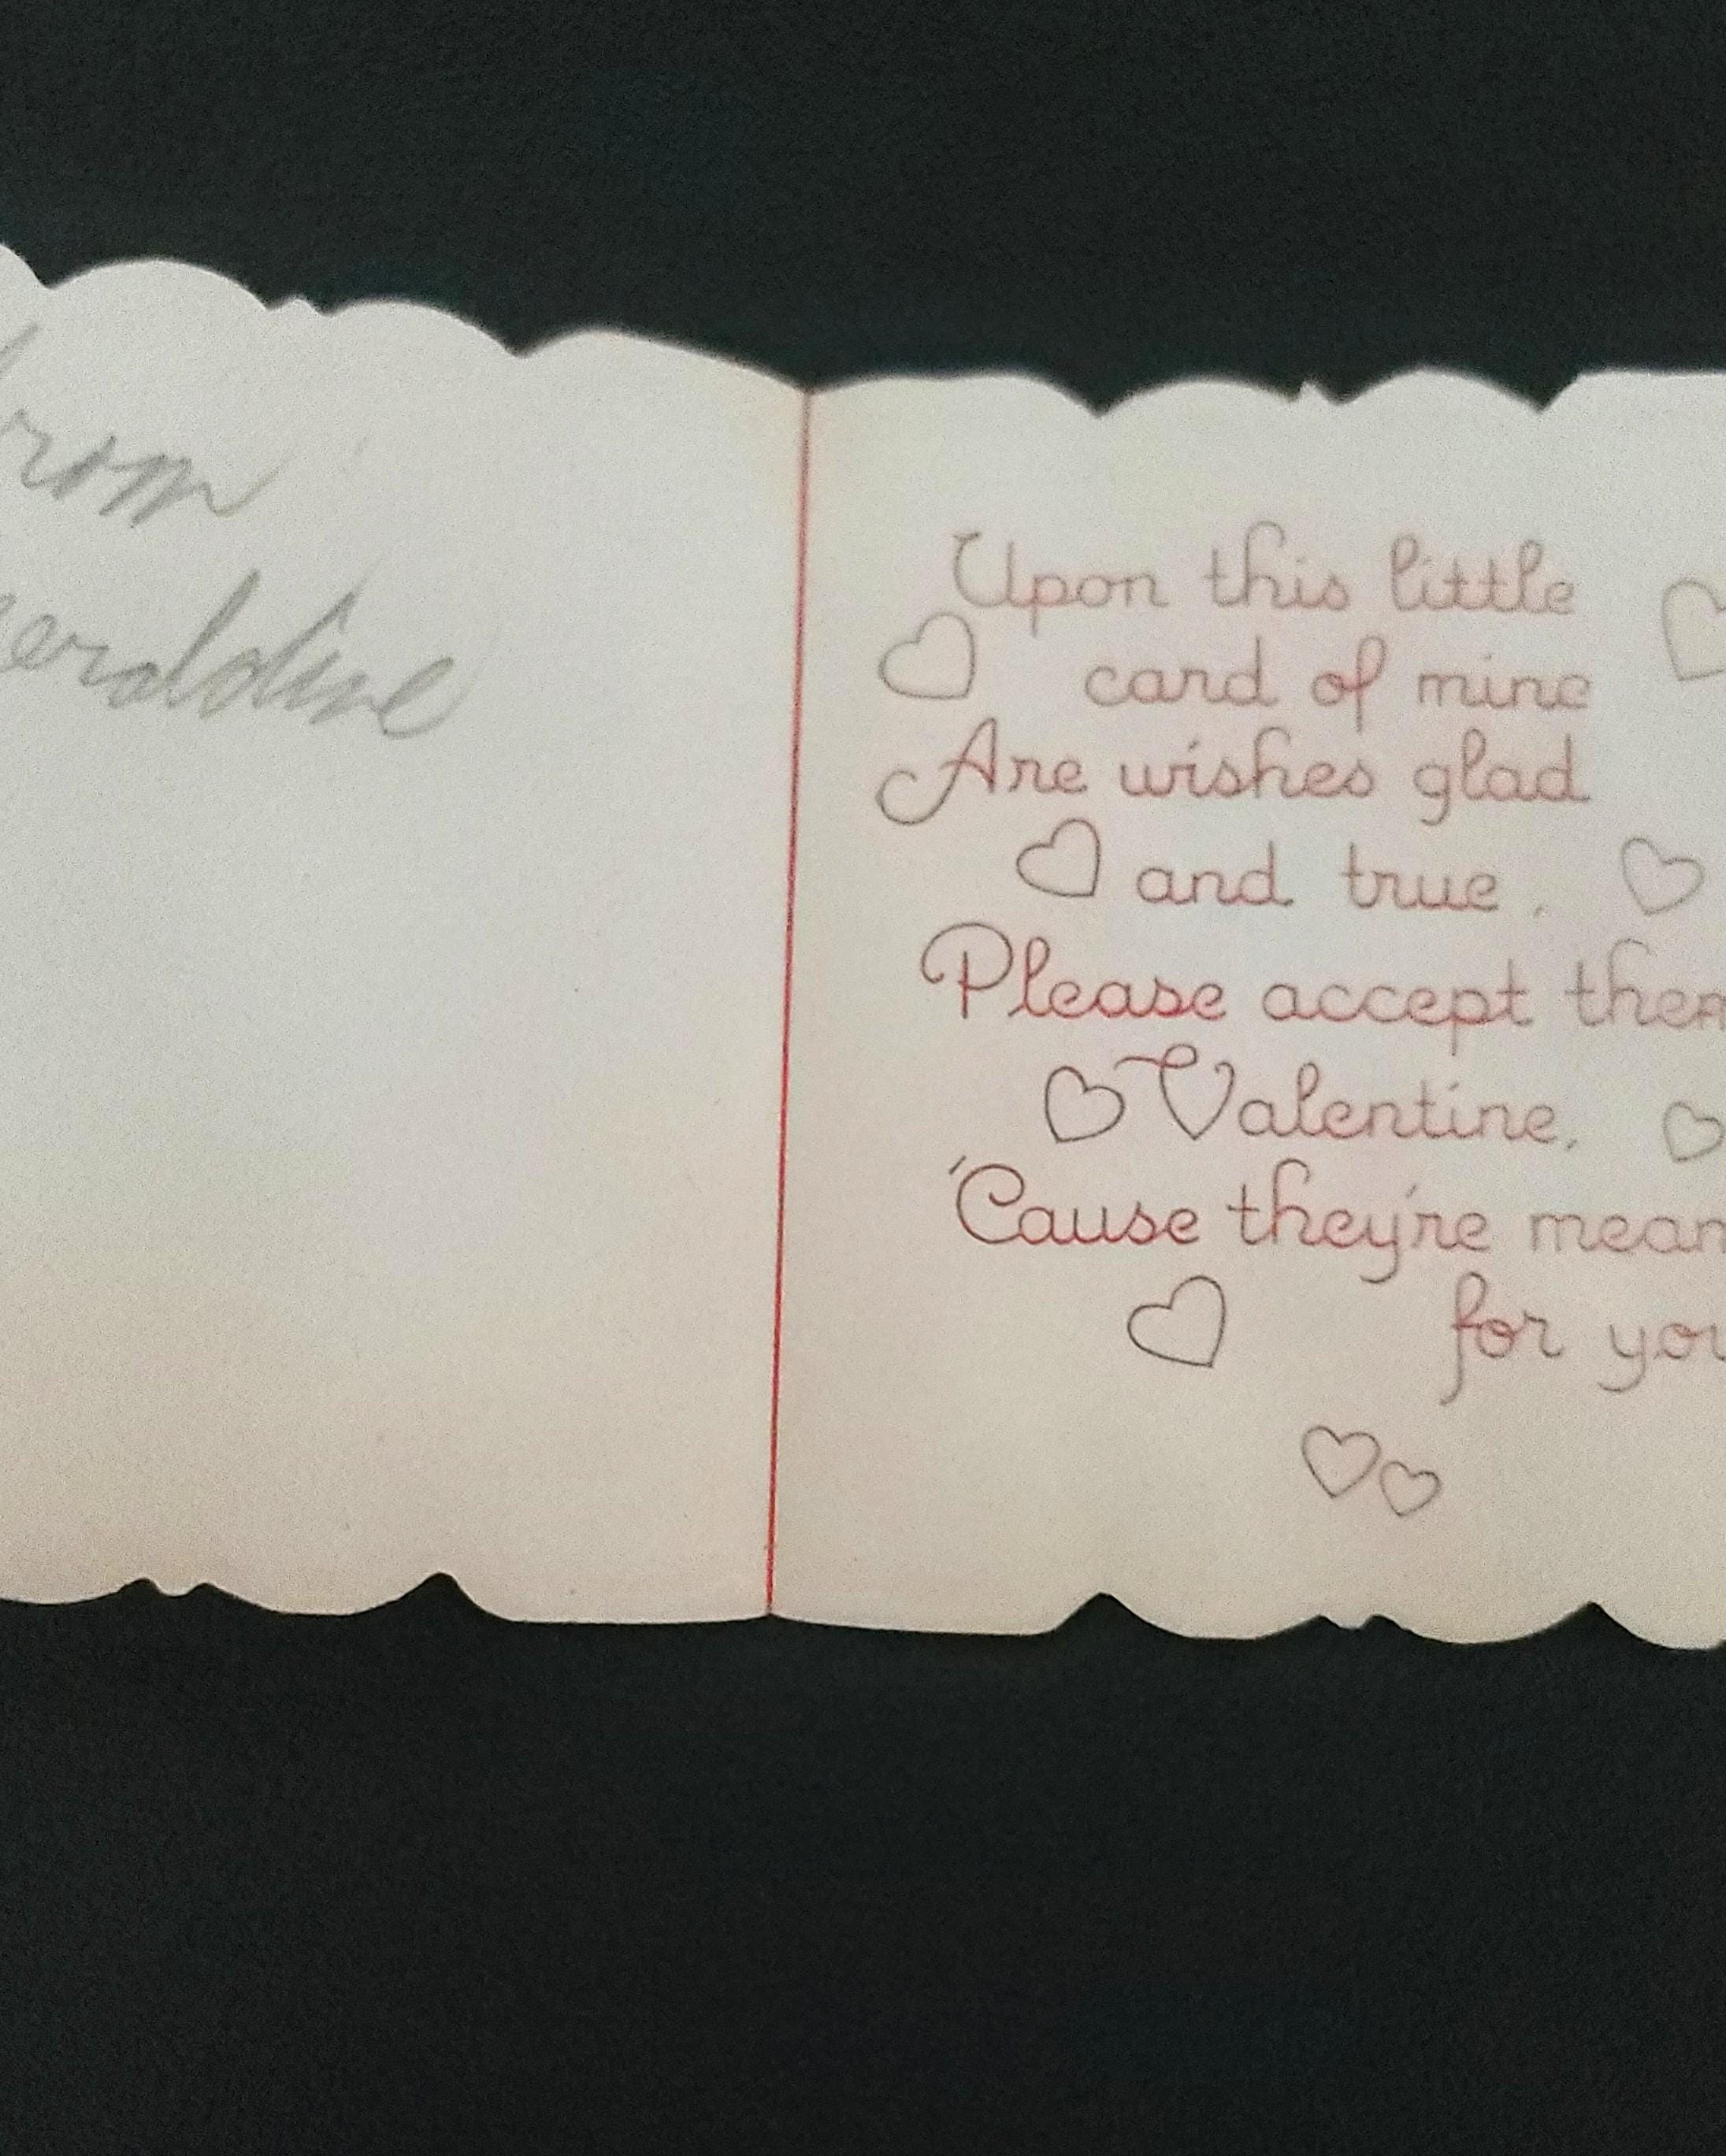 from
Geraldine
Upon this little
card of mine
Are wishes glad
and true.
Please accept them
Valentine,
'Cause they're mean
for you